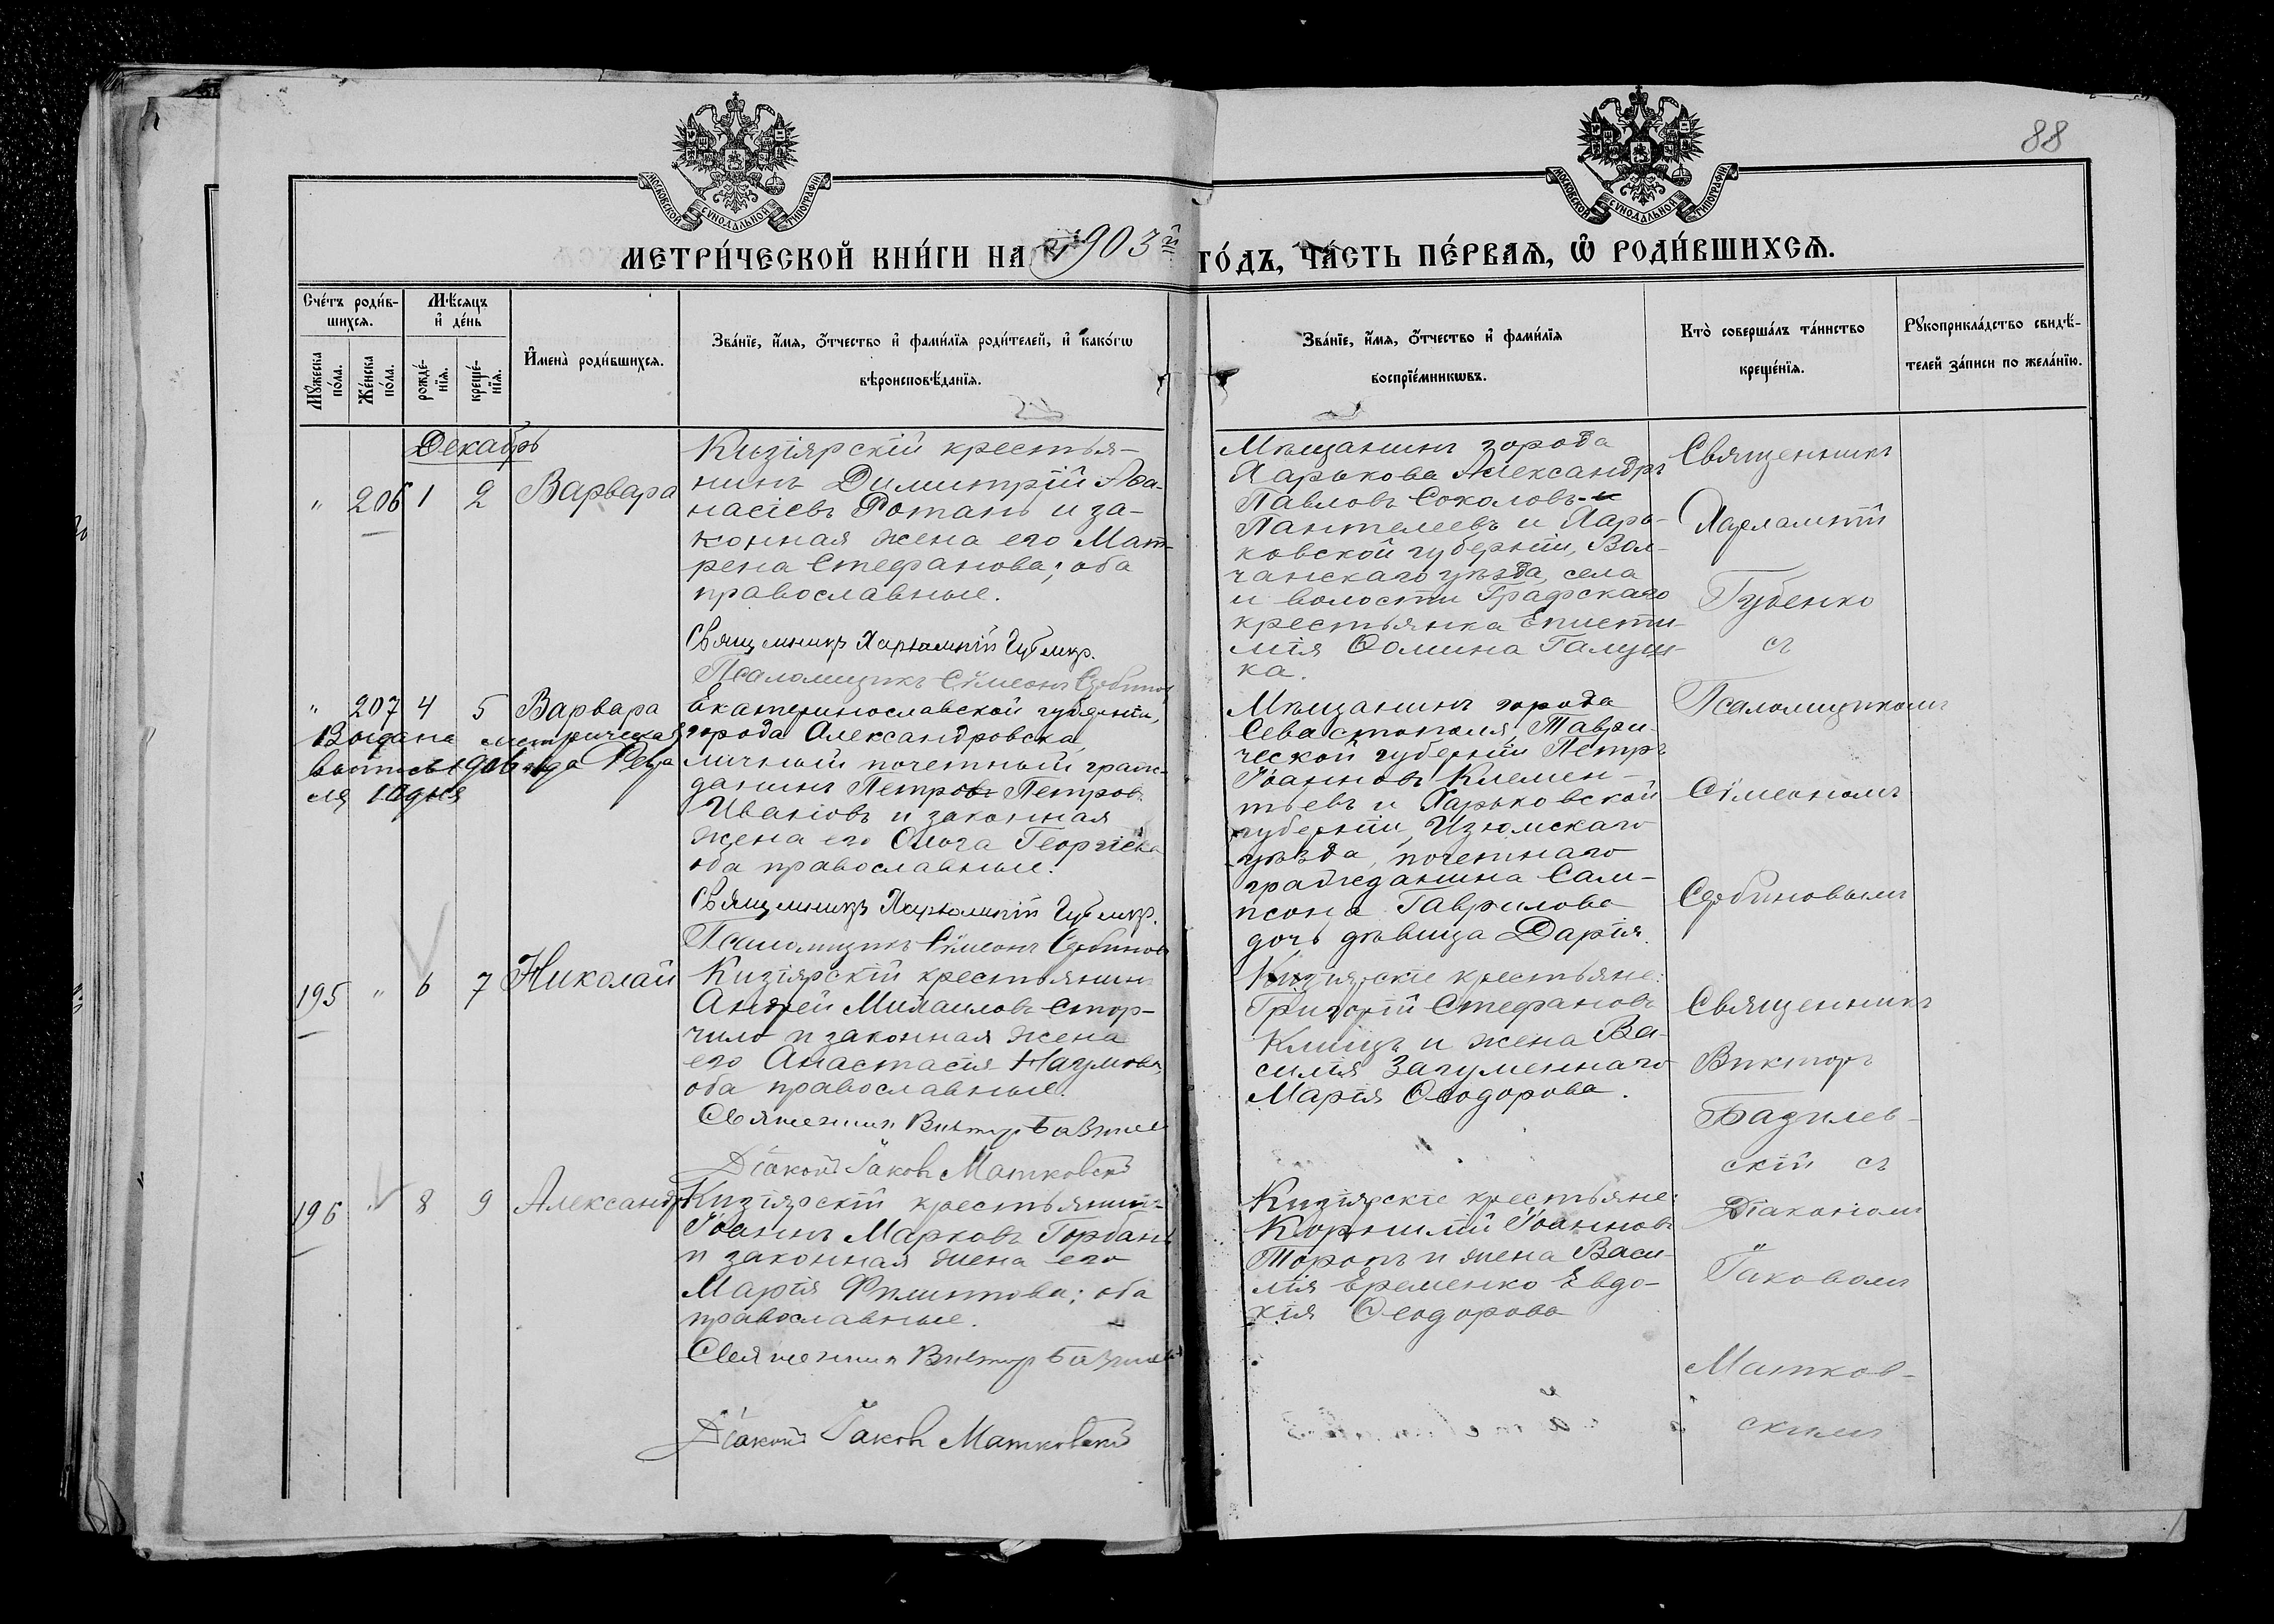 88
МОСКОВСКОЙ СУНОДАЛЬНОЙ ТИПОГРАФІИ
МОСКОВСКОЙ СУНОДАЛЬНОЙ ТИПОГРАФІИ
МЕТРИ́ЧЕСКОЙ КНИ́ГИ НА 1903й ГО́ДЪ, ЧА́СТЬ ПЕ́РВАѦ, Ѿ РОДИ́ВШИХСѦ.
Сче́тъ роди́в-
шихсѧ.
Мꙋжеска
по́ла.
Же́нска
по́ла.
Мѣ́сѧцъ
и҆ де́нь
рожде́-
нїѧ.
креще́-
нїѧ.
И҆мена̀ роди́вшихсѧ.
Зва́нїе, и҆́мѧ, ѻ҆́тчество и҆ фамн́лїѧ роди́телей, и҆ како́гѡ
вѣроисповѣ́данїѧ.
Зва́нїе, и҆́мѧ, ѻ҆́тчество и҆ фами́лїѧ
воспрїе́мникѡвъ.
Кто̀ соверша́лъ та́инство
креще́нїѧ.
Рꙋкоприкла́дство свидѣ́-
телей за́писи по жела́нїю.
Декабрь
" 206 1 2 Варвара
Кизіярскій крестья-
нинъ Димитрій Аѳа-
насіевъ Ротань и за-
конная жена его Мат-
рена Стефанова; оба
православные.
Священникъ Харлампій Губенко.
Псаломщикъ Сѵмеонъ Сербиновъ
Мѣщанинъ города
Харькова Александръ
Павловъ Соколовъ-
Пантелеевъ и Харь-
ковской губерніи, Вол-
чанскаго уѣзда, села
и волости Графскаго
крестьянка Еписти-
мія Ѳомина Галуш-
ка.
Священникъ
Харлампій
Губенко
съ
Псаломщикомъ
Сѵмеономъ
Сербиновымъ
" 207 4 5 Варвара
Выдана метрическая
выпись 1906 года
ля 10 дня
Екатеринославской губерніи,
города Александровска,
личный почетный граж-
данинъ Петръ Петров.
Ивановъ и законная
жена его Ольга Георгіева
оба православные.
Священникъ Харлампій Губенко.
Псаломщикъ Сѵмеонъ Сербиновъ
Мѣщанинъ города
Севастополя, Таври-
ческой губерніи Петръ
Іоанновъ Клемен-
тьевъ и Харьковской
губерніи, Изюмскаго
уѣзда, почетнаго
гражданина Сам-
псона Гаврилова
дочь дѣвица Дарія.
195 " 6 7 Николай
Кизіярскій крестьянинъ
Андрей Михаиловъ Стор-
чило и законная жена
его Анастасія Наумова,
оба православные.
Священникъ Викторъ Базилев
Діаконъ Іаковъ Матковскій
Кизіярскіе крестьяне:
Григорій Стефановъ
Клищъ и жена Ва-
силія Загуменнаго
Марія Ѳеодорова.
Священникъ
Викторъ
Базилев-
скій съ
Діакономъ
Іаковомъ
Матков-
скимъ
196 " 8 9 Александръ
Кизіярскій крестьянинъ
Іоаннъ Марковъ Горбань
и законная жена его
Марія Филиппова; оба
православные.
Священникъ Викторъ Базилев
Діаконъ Іаковъ Матковскій
Кизіярскіе крестьяне:
Корнилій Іоанновъ
Торопъ и жена Васи-
лія Еременко Евдо-
кія Ѳеодорова